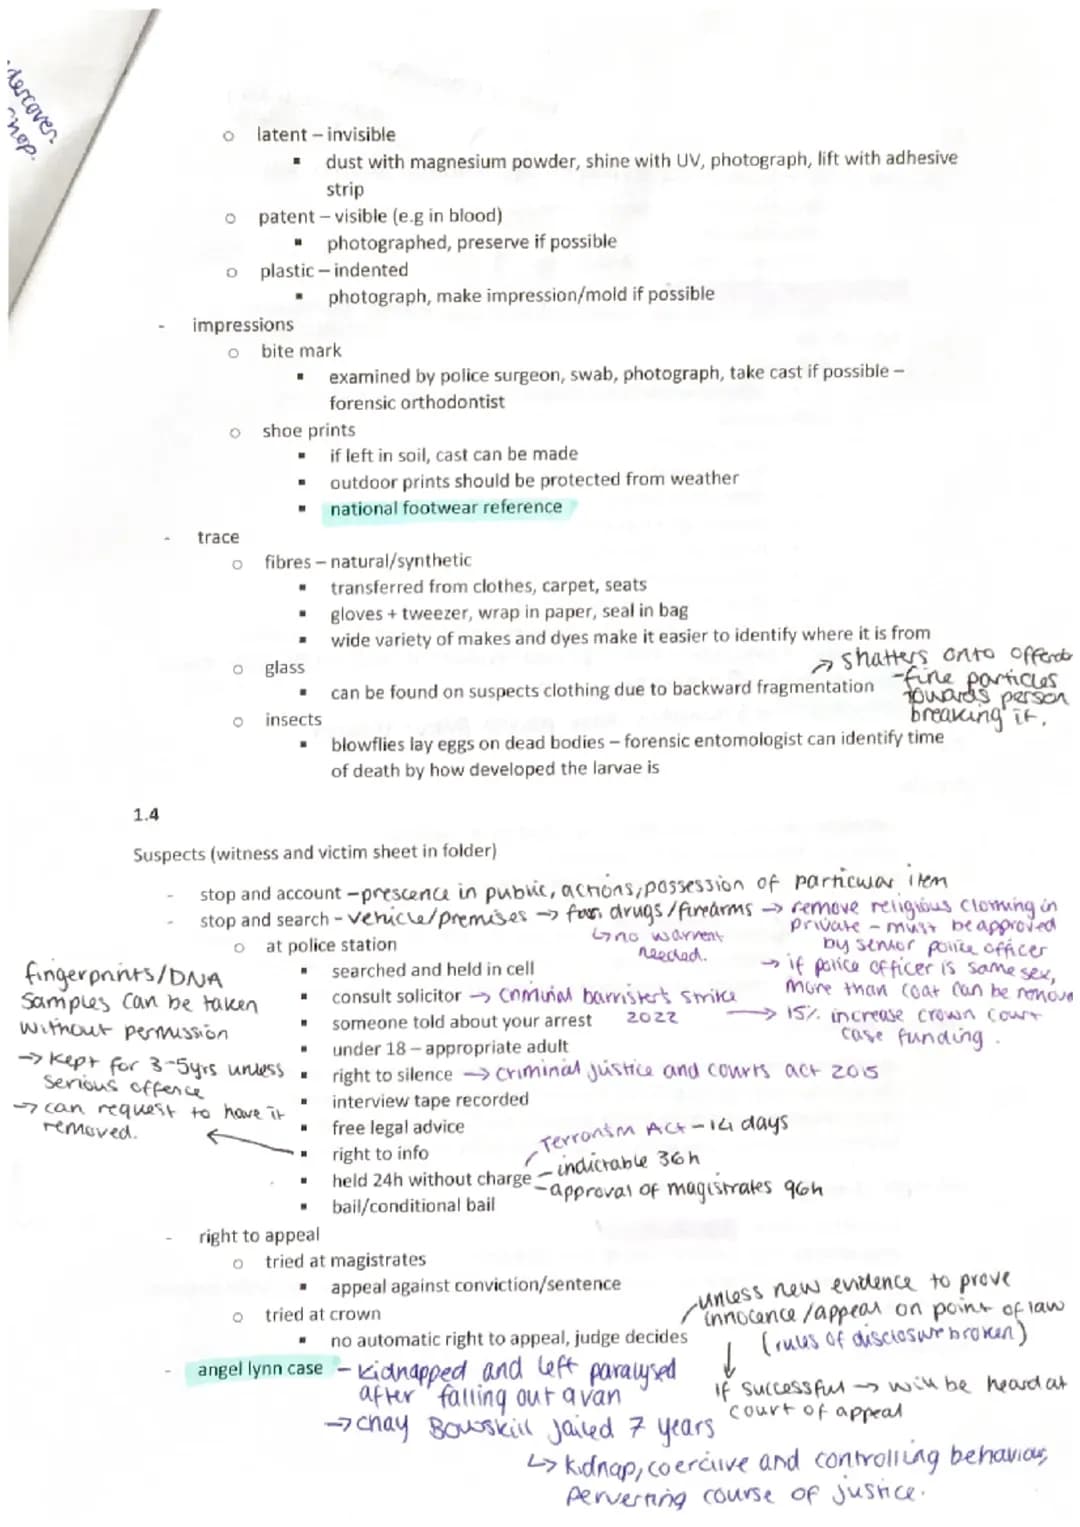 dercover
latent – invisible
dust with magnesium powder, shine with UV, photograph, lift with adhesive
strip
patent – visible (e.g in blood)
photographed, preserve if possible
plastic – indented
photograph, make impression/mold if possible
- impressions
bite mark
examined by police surgeon, swab, photograph, take cast if possible –
forensic orthodontist
shoe prints
if left in soil, cast can be made
outdoor prints should be protected from weather
national footwear reference
- trace
fibres – natural/synthetic
transferred from clothes, carpet, seats
gloves + tweezer, wrap in paper, seal in bag
wide variety of makes and dyes make it easier to identify where it is from
glass
can be found on suspects clothing due to backward fragmentation
→ shatters onto
- fine particles
towards person
breaking it.
insects
blowflies lay eggs on dead bodies – forensic entomologist can identify time
of death by how developed the larvae is
1.4
Suspects (witness and victim sheet in folder)
- stop and account - prescence in public, actions, possession of particular item
- stop and search - vehicle/premises → for drugs/firearms → remove religious clothing in
private - must be approved
by senior police officer
↳ no warrent
needed.
→ if police officer is same sex,
more than coat can be remove
at police station
searched and held in cell
consult solicitor → criminal barristers strike
2022 → 15% increase crown court
case funding.
someone told about your arrest
under 18 – appropriate adult
right to silence → criminal justice and courts act 2015
interview tape recorded
free legal advice
right to info
fingerprints/DNA
samples can be taken
without permission
→ kept for 3-5yrs unless
serious offence
→ can request to have it
removed.
held 24h without charge
Terrorism Act - 14 days
- indictable 36h
- approval of magistrates 96h
bail/conditional bail
- right to appeal
tried at magistrates
appeal against conviction/sentence
tried at crown
no automatic right to appeal, judge decides
unless new evidence to prove
innocence/appeal on point of law
(rules of disclosure broken)
↓
if successful → will be heard at
court of appeal
- angel lynn case - kidnapped and left paralysed
after falling out a van
→ chay Bowskill jailed 7 years
↳ kidnap, coercive and controlling behaviour,
perverting course of justice.